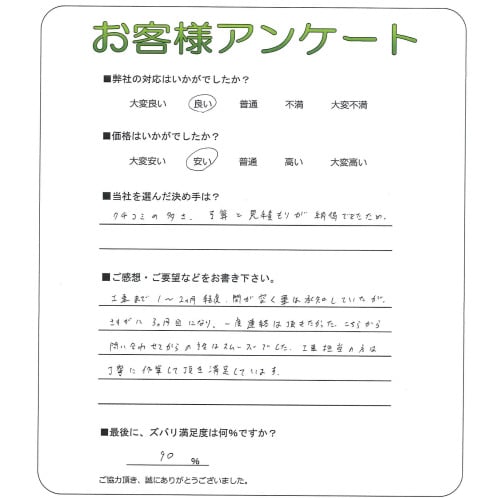 お客様アンケート
■弊社の対応はいかがでしたか?
大変良い 良い 普通 不満 大変不満
■価格はいかがでしたか?
大変安い 安い 普通 高い 大変高い
■当社を選んだ決め手は?
クチコミの多さ、予算と見積もりが納得できたため。
■ご感想・ご要望などをお書き下さい。
工事まで1〜2ヶ月程度、間が空く事は承知していたが、
さすがに3ヶ月目になり、一度連絡は頂きたかった。こちらから
問い合わせてからの方はスムーズでした。工事担当の方は
丁寧に作業して頂き満足しています。
■最後に、ズバリ満足度は何%ですか?
90 %
ご協力頂き、誠にありがとうございました。